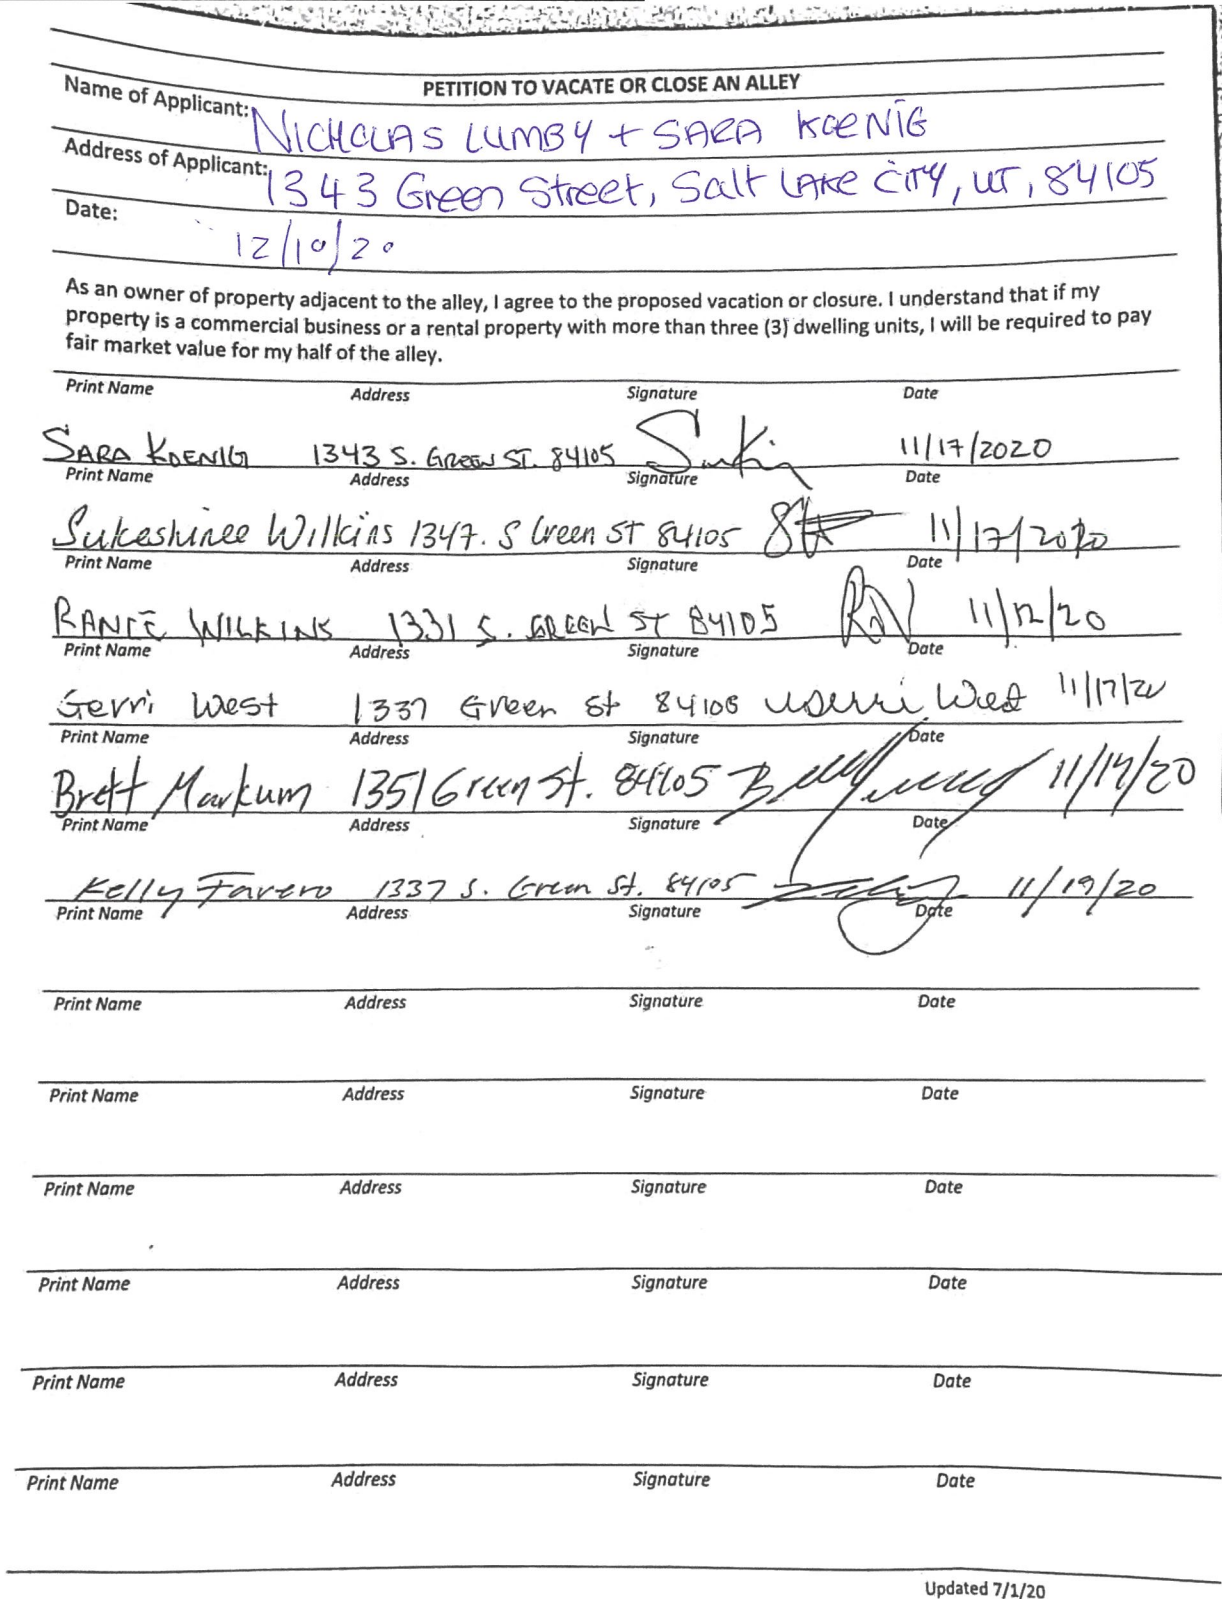 PETITION TO VACATE OR CLOSE AN ALLEY
Name of Applicant: NICHOLAS LUMBY + SARA KOENIG
Address of Applicant: 1343 Green Street, Salt Lake City, UT, 84105
Date: 12/10/20
As an owner of property adjacent to the alley, I agree to the proposed vacation or closure. I understand that if my
property is a commercial business or a rental property with more than three (3) dwelling units, I will be required to pay
fair market value for my half of the alley.
Print Name Address Signature Date
SARA KOENIG 1343 S. GREEN ST. 84105 11/17/2020
Print Name Address Signature Date
Sukeshinee Wilkins 1347. S Green ST 84105 11/17/2020
Print Name Address Signature Date
RANCE WILKINS 1331 S. GREEN ST 84105 11/12/20
Print Name Address Signature Date
Gerri West 1337 Green St 84105 Gerri West 11/17/20
Print Name Address Signature Date
Brett Markum 1351 Green St. 84105 11/17/20
Print Name Address Signature Date
Kelly Favero 1337 S. Green St. 84105 11/19/20
Print Name Address Signature Date
Print Name Address Signature Date
Print Name Address Signature Date
Print Name Address Signature Date
Print Name Address Signature Date
Print Name Address Signature Date
Print Name Address Signature Date
Updated 7/1/20